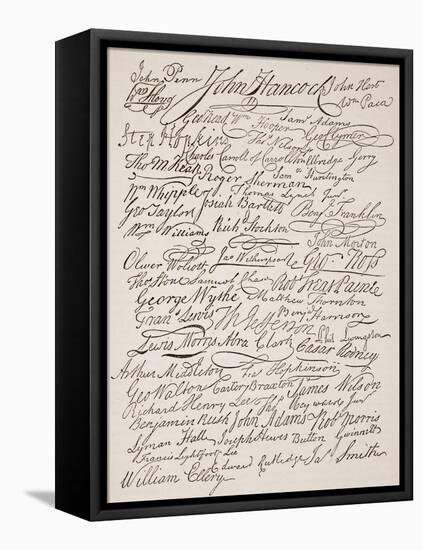 John Penn John Hancock John Hart
Wm Paca
Geo Read Wm Hooper Saml Adams
Step Hopkins Thos Nelson Jr Geo Clymer
Charles Carroll of Carrollton Elbridge Gerry
Tho M:Kean Roger Sherman Sam Huntington
Wm Whipple Thomas Lynch Junr
Josiah Bartlett Benj Franklin
Geo Taylor
Wm Williams Richd Stockton
John Morton
Oliver Wolcott Jno Witherspoon Geo Ross
Thos Stone Samuel Chase Robt Treat Paine
George Wythe Matthew Thornton
Frans Lewis Th Jefferson Benj Harrison
Lewis Morris Abra Clark Phil Livingston
Casar Rodney
Arthur Middleton Fra Hopkinson
Geo Walton Carter Braxton James Wilson
Richard Henry Lee Thos Heywood Junr
Benjamin Rush John Adams Rob Morris
Lyman Hall Joseph Hewes Button Gwinnett
Francis Lightfoot Lee
Edward Rutledge Jas Smith
William Ellery